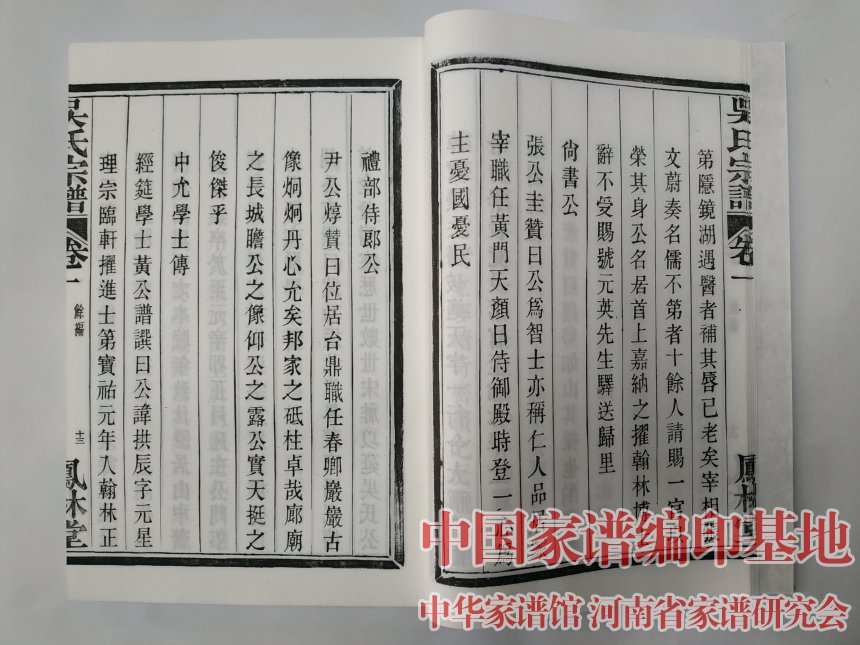 吳氏宗譜 卷一
鳳林
第隱鏡湖遇醫者補其唇已老矣宰相張
文蔚奏名儒不第者十餘人請賜一官
榮其身公名居首上嘉納之擢翰林博
辭不受賜號元英先生驛送歸里
尙書公
張公圭贊曰公爲智士亦稱仁人品
宰職任黃門天顏日侍御殿時登一心爲
主憂國憂民
禮部侍郎公
尹公焞贊曰位居台鼎職任春卿巖巖古
像炯炯丹心允矣邦家之砥柱卓哉廊廟
之長城瞻公之像仰公之露公實天挺之
俊傑乎
中允學士傳
經筵學士黃公譜譔曰公諱拱辰字元星
理宗臨軒擢進士第寶祐元年入翰林正
吳氏宗譜 卷一 餘編 十三 鳳林堂
中国家谱编印基地
中华家谱馆 河南省家谱研究会